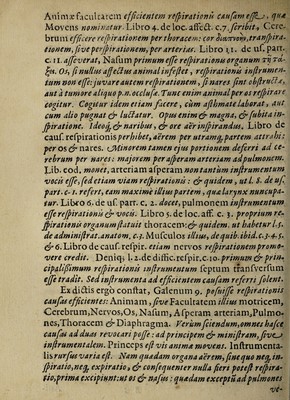 Animæ facultatem efficientem respirationis causam esse, quæ
Movens nominatur. Libro 4. de loc. affect. c. 7. scribit, Cere-
brum efficere respirationem per thoracem: cor transpira-
tionem, sive perspirationem, per arterias. Libro 11. de us. part.
c. 11. asserunt, Nasum primum esse respirationis organum τῇ τά-
ξει. Os, si nullus affectus animal infestet, respirationis instrumen-
tum non esse: juvare autem respirationem, si nares sint obstructæ,
aut à tumore aliquo p. n. occlusæ. Tunc enim animal per os respirare
cogitur. Cogitur idem etiam facere, cùm asthmate laborat, aut
cum alio pugnat & luctatur. Opus enim & magna, & subita in-
spiratione. Ideoq; & naribus, & ore aërem inspiramus. Libro de
caus. respirationis perhibet, aërem per utramq; partem attrahi:
per os & nares. Minorem tamen ejus portionem deferri ad ce-
rebrum per nares: majorem per asperam arteriam ad pulmonem.
Lib. eod. monet, arteriam asperam non tantùm instrumentum
vocis esse, sed etiam viam respirationis: & quidem, ut l. 8. de us.
part. c. 1. refert, eam maximè illius partem, quæ larynx nuncupa-
tur. Libro 6. de us. part. c. 2. docet, pulmonem instrumentum
esse respirationis & vocis. Libro 5. de loc. aff. c. 3. proprium re-
spirationis organum statuit thoracem: & quidem, ut habetur l. 5.
de administrat. anatom. c. 3. Musculos illius, de quib. ibid. c. 3. 4. 5.
& 6. Libro de caus. respir. etiam nervos respirationem promo-
vere credit. Deniq; l. 2. de diffic. respir. c. 10. primum & prin-
cipalissimum respirationis instrumentum septum transversum
esse tradit. Sed instrumenta ad efficientem causam referri solent.
Ex dictis ergo constat, Galenum 9. posuisse respirationis
causas efficientes: Animam, sive Facultatem illius motricem,
Cerebrum, Nervos, Os, Nasum, Asperam arteriam, Pulmo-
nes, Thoracem & Diaphragma. Verùm sciendum, omnes hasce
causas ad duas revocari posse: ad principem & ministram, sive
instrumentalem. Princeps est vis animæ movens. Instrumenta-
lis rursus varia est. Nam quædam organa aërem, sine quo neq; in-
spiratio, neq; expiratio, & consequenter nulla fieri potest respira-
tio, prima excipiunt: ut os & nasus: quædam exceptũ ad pulmones
ve-